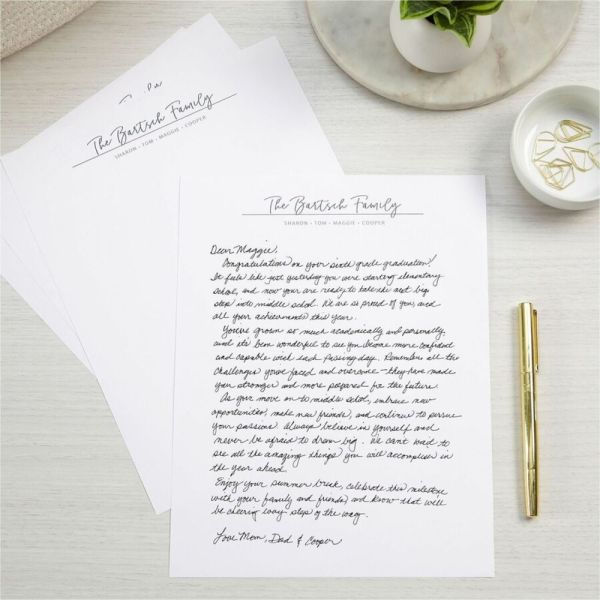 The Bartsch Family
SHARON • TOM • MAGGIE • COOPER
The Bartsch Family
SHARON • TOM • MAGGIE • COOPER
Dear Maggie,
Congratulations on your sixth grade graduation!
It feels like just yesterday you were starting elementary
school, and now your are ready to take the next big
step into middle school. We are so proud of you, and
all your achievements this year.
You've grown so much academically and personally,
and it's been wonderful to see you become more confident
and capable with each passing day. Remember all the
challenges you've faced and overcome - they have made
you stronger and more prepared for the future.
As your move on to middle school, embrace new
opportunities, make new friends, and continue to pursue
your passions. Always believe in yourself and
never be afraid to dream big. We can't wait to
see all the amazing things you will accomplish in
the year ahead.
Enjoy your summer break, celebrate this milestone
with your family and friends, and know that will
be cheering way step of the way.
Love Mom, Dad & Cooper